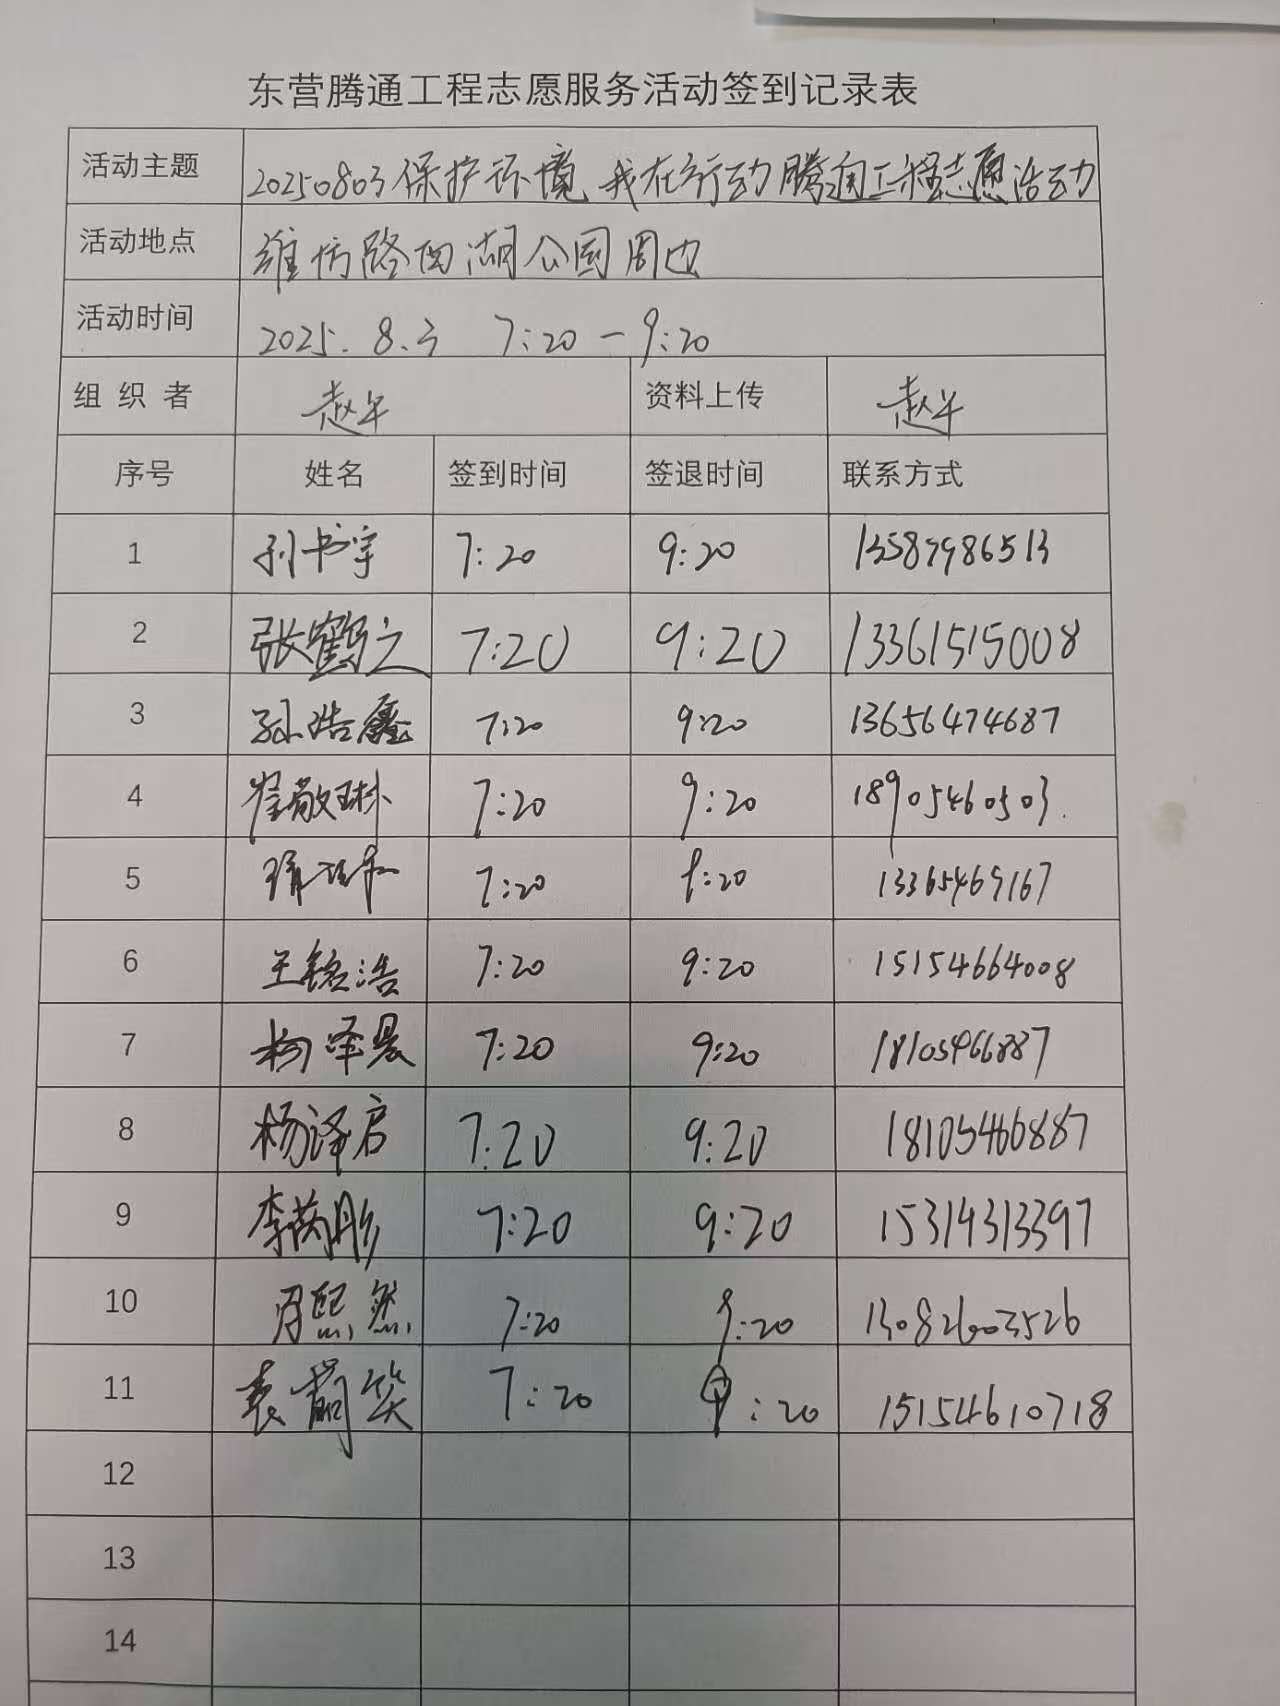 东营腾通工程志愿服务活动签到记录表
活动主题 20250803保护环境 我在行动 腾通工程志愿活动
活动地点 潍坊路西湖公园周边
活动时间 2025.8.3 7:20-9:20
组 织 者 赵军 资料上传 赵军
序号 姓名 签到时间 签退时间 联系方式
1 孙书宇 7:20 9:20 13589986513
2 张鹤之 7:20 9:20 13361515008
3 孙浩鑫 7:20 9:20 13656474687
4 崔敬琳 7:20 9:20 18905460503
5 7:20 9:20 13365469167
6 王铭浩 7:20 9:20 15154664008
7 杨泽晨 7:20 9:20 18105466887
8 杨泽启 7:20 9:20 18105466887
9 李芮彤 7:20 9:20 15314313397
10 周熙然 7:20 9:20 13082603526
11 7:20 9:20 15154610718
12
13
14